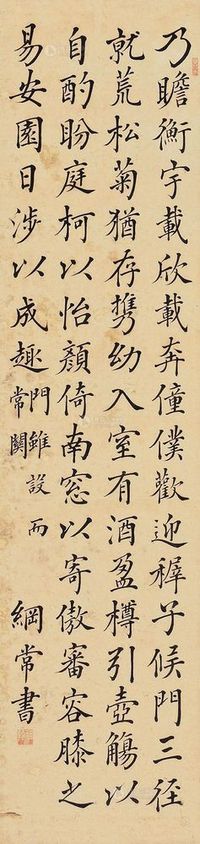 乃瞻衡宇載欣載奔僮僕歡迎穉子候門三徑
就荒松菊猶存携幼入室有酒盈樽引壺觴以
自酌盼庭柯以怡顏倚南窓以寄傲審容膝之
易安園日涉以成趣門雖設而常關
綱常書